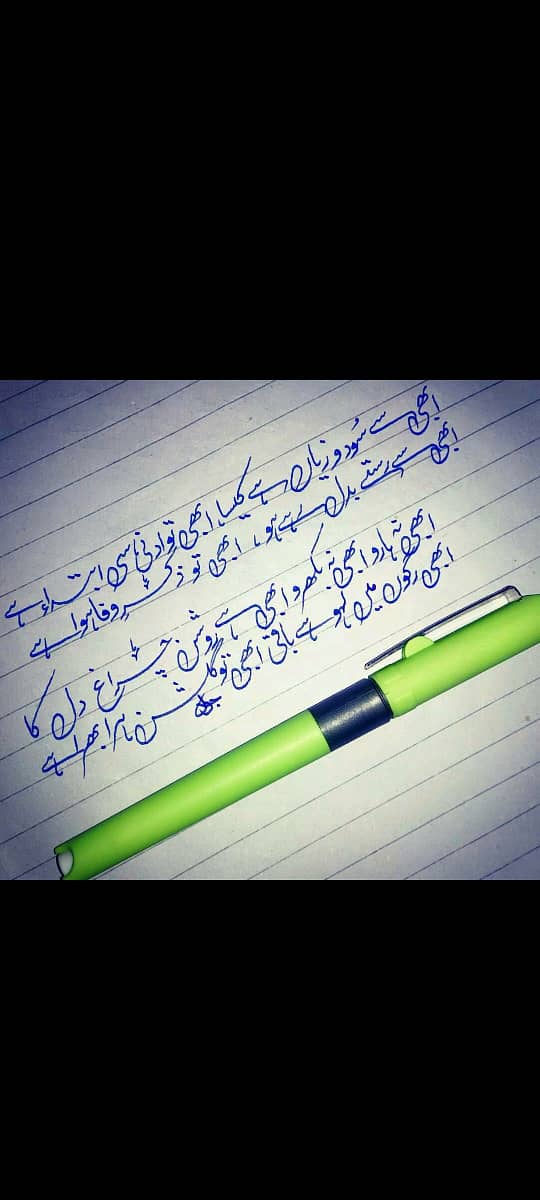 ابھی سے سُود و زیاں ہے کیسا ابھی تو ادنیٰ سی ابتداء ہے
ابھی سے رستے بدل رہے ہو، ابھی تو ذکرِ وفا ہوا ہے
ابھی نہ ہارو ابھی نہ بکھرو ابھی ہے روشن چراغ دل کا
ابھی رگوں میں لہو ہے باقی ابھی تو گلشن ہرا بھرا ہے